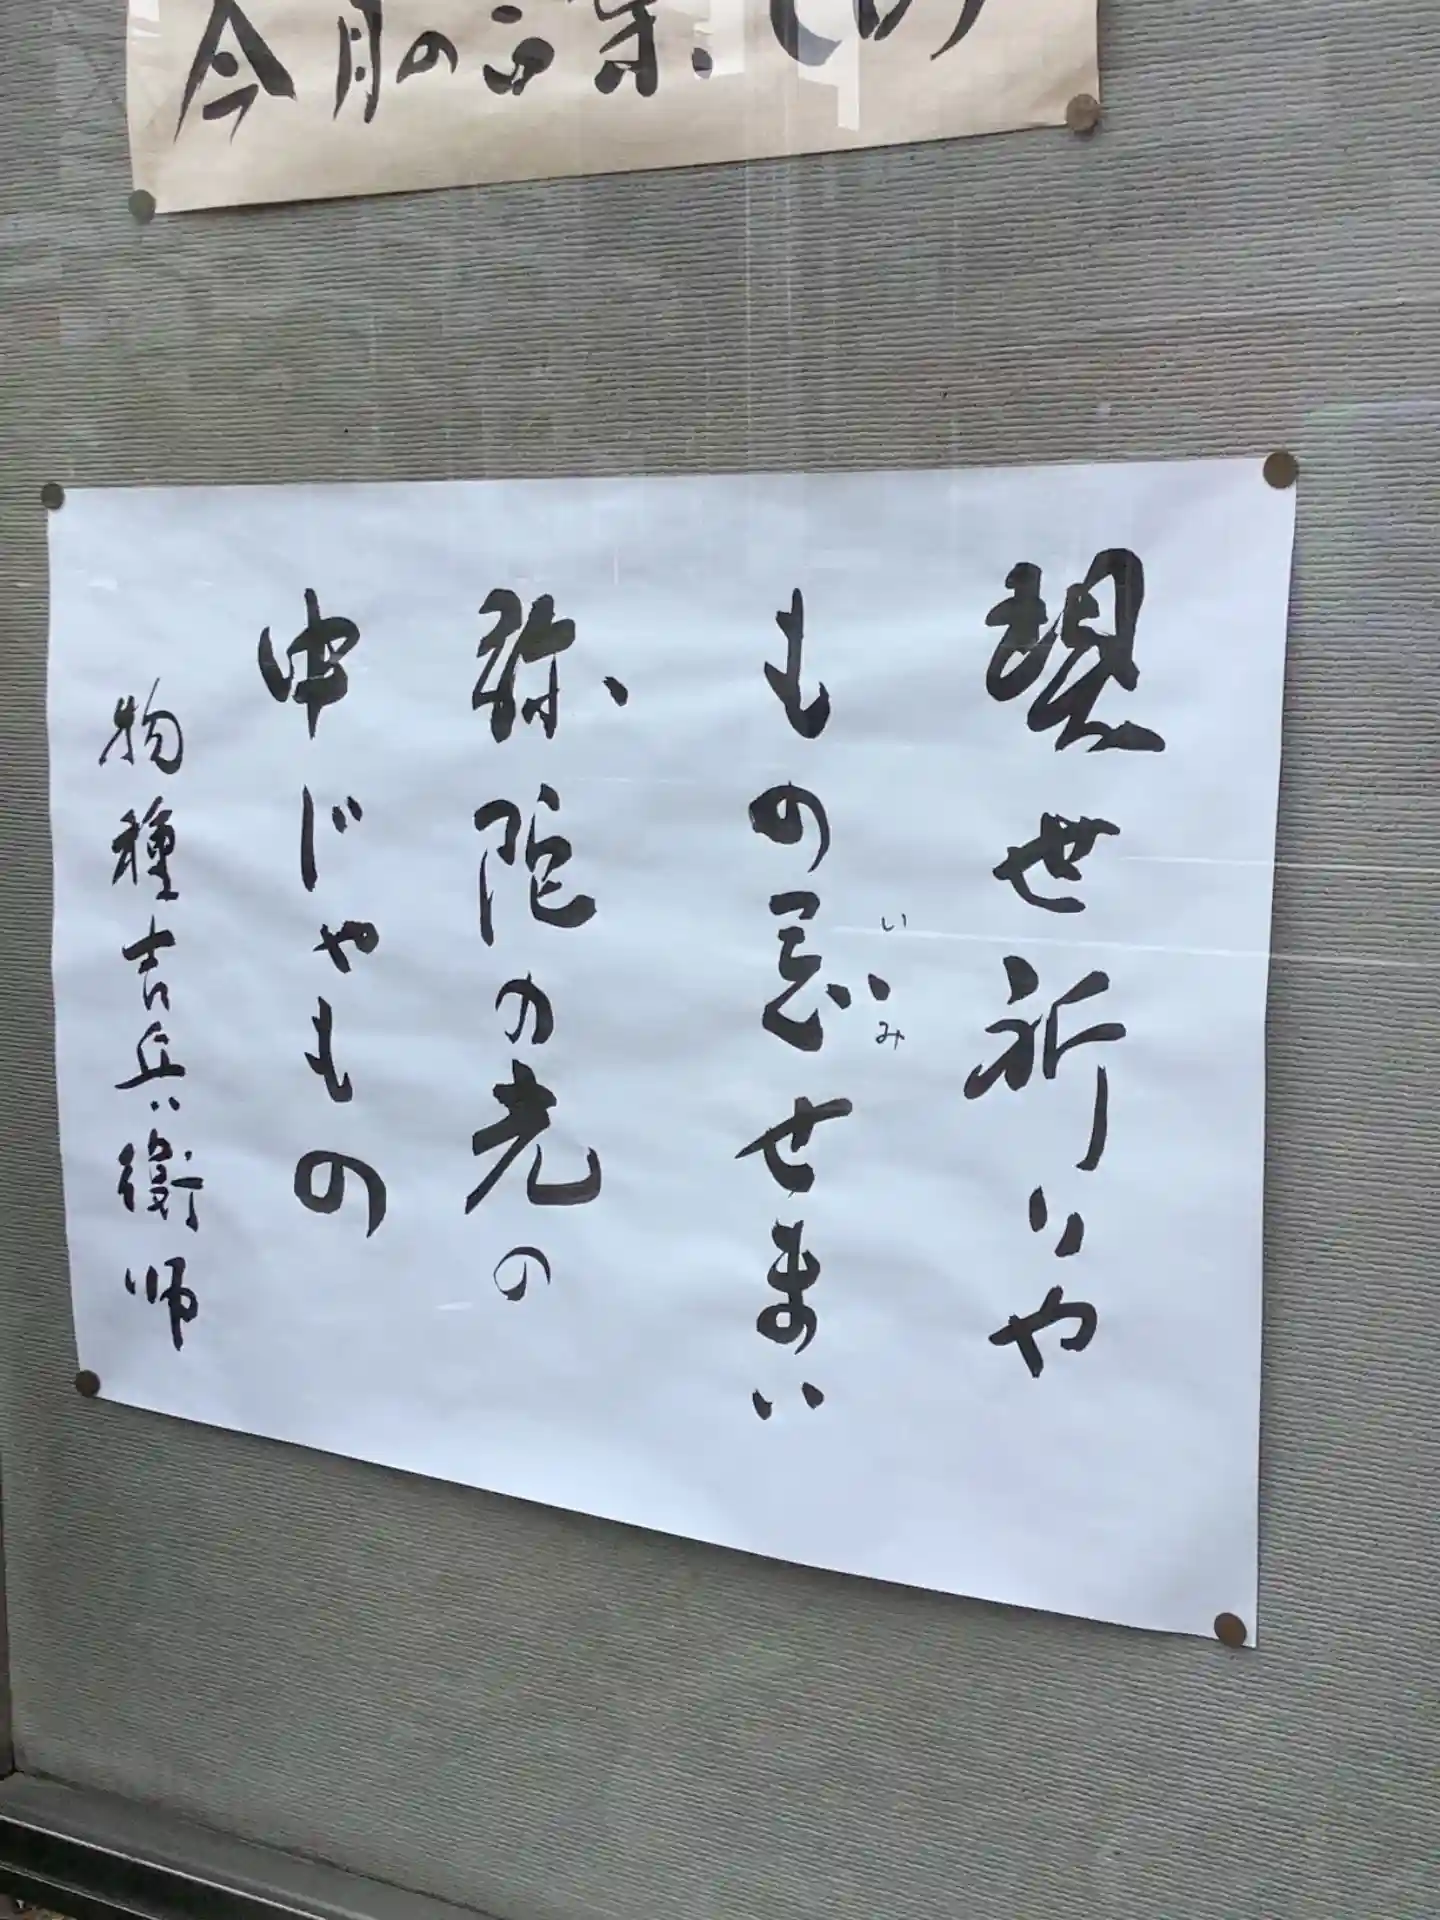 今月の言葉
現世祈りや
もの忌せまい
いみ
弥陀の光の
中じゃもの
物種吉兵衛師